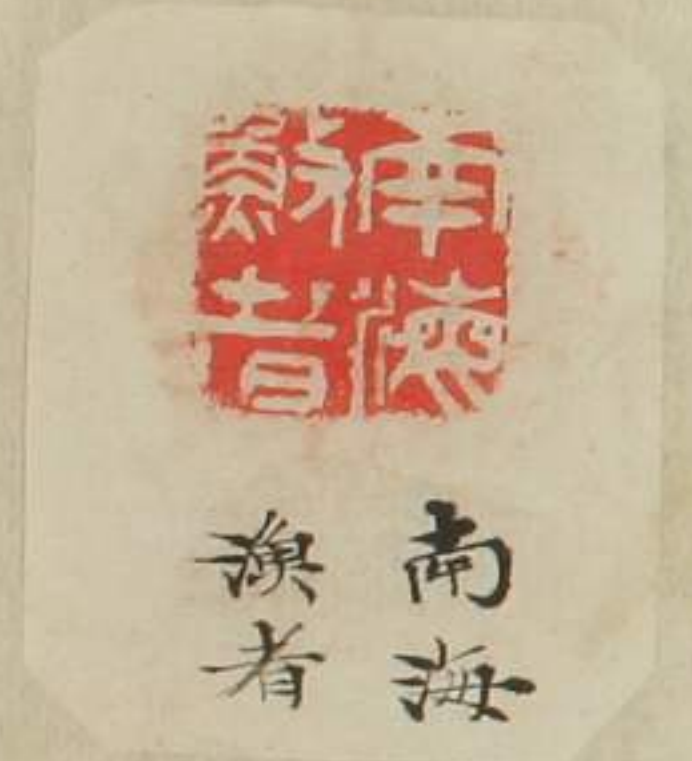 南海
漁者
南海
漁者